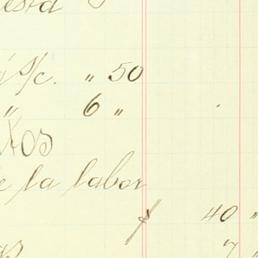 esta
á o/c. „ 50
„ 6 „
tos
e la labor
$ 40 „
as 7 „